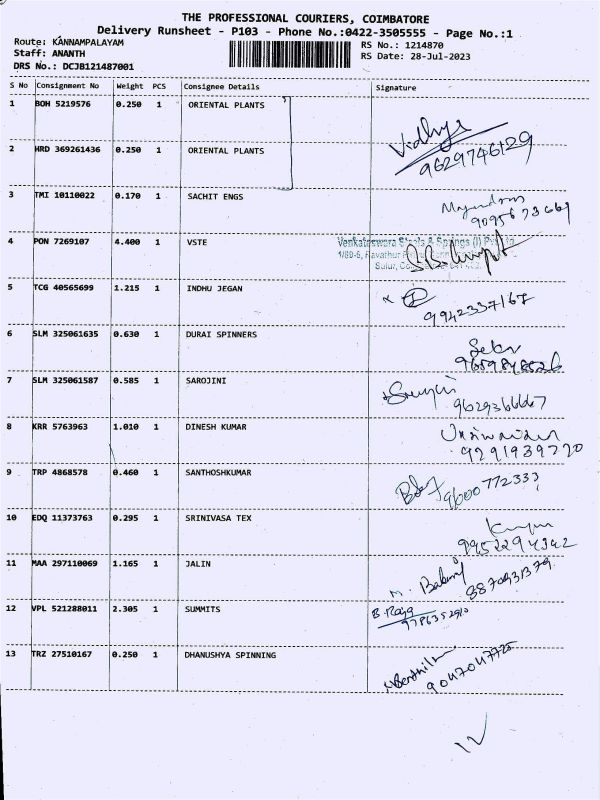 THE PROFESSIONAL COURIERS, COIMBATORE
Delivery Runsheet - P103 - Phone No.:0422-3505555 - Page No.:1
Route: KANNAMPALAYAM
RS No.: 1214870
Staff: ANANTH
RS Date: 28-Jul-2023
DRS No.: DCJB121487001
S No Consignment No Weight PCS Consignee Details Signature
1 BOH 5219576 0.250 1 ORIENTAL PLANTS
Vidhya
9629746129
2 HRD 369261436 0.250 1 ORIENTAL PLANTS
3 TMI 10110022 0.170 1 SACHIT ENGS
9095673669
4 PON 7269107 4.400 1 VSTE
Venkateswara Steels & Springs (I) Pvt Ltd
5 TCG 40565699 1.215 1 INDHU JEGAN
9942337167
6 SLM 325061635 0.630 1 DURAI SPINNERS
7 SLM 325061587 0.585 1 SAROJINI
9629366667
8 KRR 5763963 1.010 1 DINESH KUMAR
9291939770
9 TRP 4868578 0.460 1 SANTHOSHKUMAR
9600772333
10 EDQ 11373763 0.295 1 SRINIVASA TEX
9952294342
11 MAA 297110069 1.165 1 JALIN
12 VPL 521288011 2.305 1 SUMMITS
B. Raja
13 TRZ 27510167 0.250 1 DHANUSHYA SPINNING
9047047725